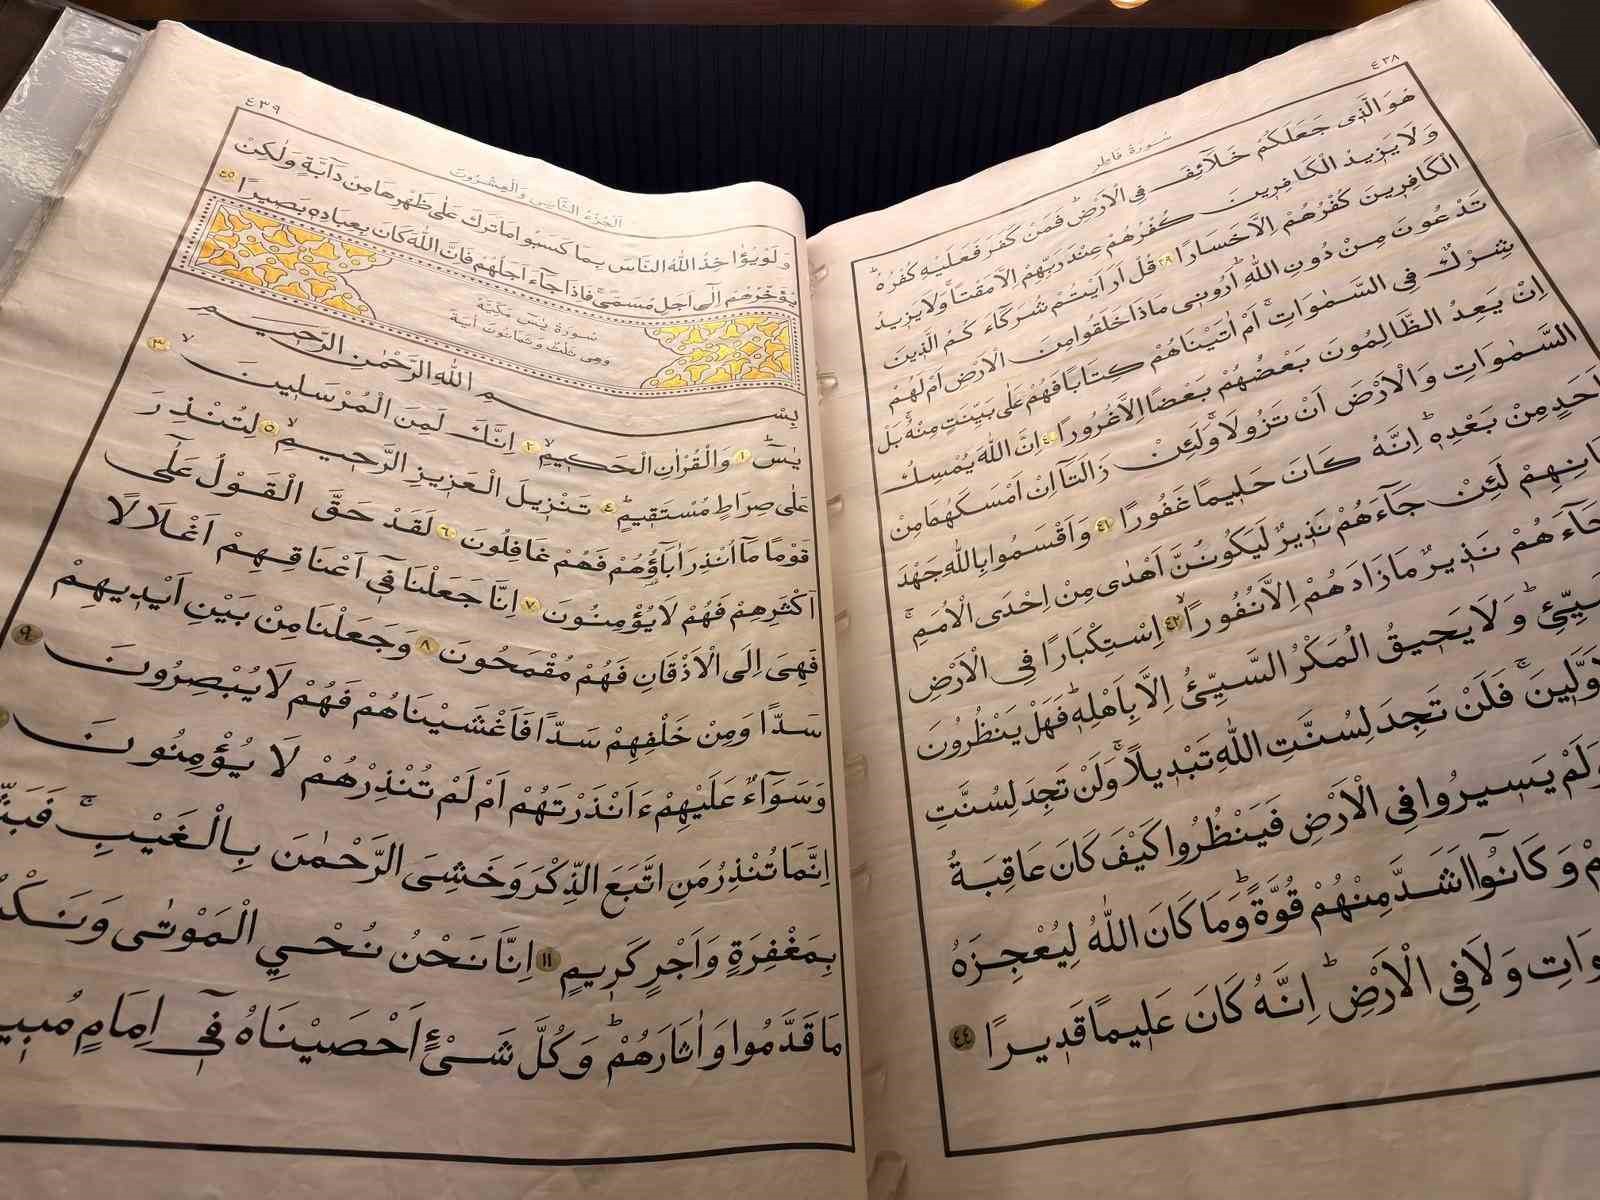 ٤٣٨
سُورَةُ فَاطِرٍ
هُوَ الَّذِى جَعَلَكُمْ خَلَآئِفَ فِى الْاَرْضِ فَمَنْ كَفَرَ فَعَلَيْهِ كُفْرُهُ
وَلَا يَزِيدُ الْكَافِرِينَ كُفْرُهُمْ عِنْدَ رَبِّهِمْ اِلَّا مَقْتًا وَلَا يَزِيدُ
الْكَافِرِينَ كُفْرُهُمْ اِلَّا خَسَارًا ٣٩ قُلْ اَرَاَيْتُمْ شُرَكَآءَ كُمُ الَّذِينَ
تَدْعُونَ مِنْ دُونِ اللّٰهِ اَرُونِى مَاذَا خَلَقُوا مِنَ الْاَرْضِ اَمْ لَهُمْ
شِرْكٌ فِى السَّمٰوَاتِ اَمْ اٰتَيْنَاهُمْ كِتَابًا فَهُمْ عَلٰى بَيِّنَتٍ مِنْهُ بَلْ
اِنْ يَعِدُ الظَّالِمُونَ بَعْضُهُمْ بَعْضًا اِلَّا غُرُورًا ٤٠ اِنَّ اللّٰهَ يُمْسِكُ
السَّمٰوَاتِ وَالْاَرْضَ اَنْ تَزُولَا وَلَئِنْ زَالَتَا اِنْ اَمْسَكَهُمَا مِنْ
اَحَدٍ مِنْ بَعْدِهِ اِنَّهُ كَانَ حَلِيمًا غَفُورًا ٤١ وَاَقْسَمُوا بِاللّٰهِ جَهْدَ
انِهِمْ لَئِنْ جَآءَهُمْ نَذِيرٌ لَيَكُونُنَّ اَهْدٰى مِنْ اِحْدَى الْاُمَمِ
جَآءَهُمْ نَذِيرٌ مَازَادَهُمْ اِلَّا نُفُورًا ٤٢ اِسْتِكْبَارًا فِى الْاَرْضِ
يِّئِ وَلَا يَحِيقُ الْمَكْرُ السَّيِّئُ اِلَّا بِاَهْلِهِ فَهَلْ يَنْظُرُونَ
وَّلِينَ فَلَنْ تَجِدَ لِسُنَّتِ اللّٰهِ تَبْدِيلًا وَلَنْ تَجِدَ لِسُنَّتِ
وَلَمْ يَسِيرُوا فِى الْاَرْضِ فَيَنْظُرُوا كَيْفَ كَانَ عَاقِبَةُ
مْ وَكَانُوا اَشَدَّ مِنْهُمْ قُوَّةً وَمَا كَانَ اللّٰهُ لِيُعْجِزَهُ
وَاتِ وَلَا فِى الْاَرْضِ اِنَّهُ كَانَ عَلِيمًا قَدِيرًا ٤٤
٤٣٩
اَلْجُزْءُ الثَّانِى وَالْعِشْرُونَ
وَلَوْ يُؤَاخِذُ اللّٰهُ النَّاسَ بِمَا كَسَبُوا مَا تَرَكَ عَلٰى ظَهْرِهَا مِنْ دَآبَّةٍ وَلٰكِنْ
يُؤَخِّرُهُمْ اِلٰٓى اَجَلٍ مُسَمًّى فَاِذَا جَآءَ اَجَلُهُمْ فَاِنَّ اللّٰهَ كَانَ بِعِبَادِهِ بَصِيرًا ٤٥
سُورَةُ يٰسٓ مَكِّيَّةٌ
وَهِىَ ثَلٰثٌ وَثَمَانُونَ اٰيَةً
بِسْمِ اللّٰهِ الرَّحْمٰنِ الرَّحِيمِ
يٰسٓ ١ وَالْقُرْاٰنِ الْحَكِيمِ ٢ اِنَّكَ لَمِنَ الْمُرْسَلِينَ ٣
عَلٰى صِرَاطٍ مُسْتَقِيمٍ ٤ تَنْزِيلَ الْعَزِيزِ الرَّحِيمِ ٥ لِتُنْذِرَ
قَوْمًا مَآ اُنْذِرَ اٰبَآؤُهُمْ فَهُمْ غَافِلُونَ ٦ لَقَدْ حَقَّ الْقَوْلُ عَلٰٓى
اَكْثَرِهِمْ فَهُمْ لَا يُؤْمِنُونَ ٧ اِنَّا جَعَلْنَا فِٓى اَعْنَاقِهِمْ اَغْلَالًا
فَهِىَ اِلَى الْاَذْقَانِ فَهُمْ مُقْمَحُونَ ٨ وَجَعَلْنَا مِنْ بَيْنِ اَيْدِيهِمْ
سَدًّا وَمِنْ خَلْفِهِمْ سَدًّا فَاَغْشَيْنَاهُمْ فَهُمْ لَا يُبْصِرُونَ ٩
وَسَوَآءٌ عَلَيْهِمْ ءَاَنْذَرْتَهُمْ اَمْ لَمْ تُنْذِرْهُمْ لَا يُؤْمِنُونَ
اِنَّمَا تُنْذِرُ مَنِ اتَّبَعَ الذِّكْرَ وَخَشِىَ الرَّحْمٰنَ بِالْغَيْبِ فَبَشِّ
بِمَغْفِرَةٍ وَاَجْرٍ كَرِيمٍ ١١ اِنَّا نَحْنُ نُحْيِى الْمَوْتٰى وَنَكْ
مَا قَدَّمُوا وَاٰثَارَهُمْ وَكُلَّ شَىْءٍ اَحْصَيْنَاهُ فِٓى اِمَامٍ مُبِي